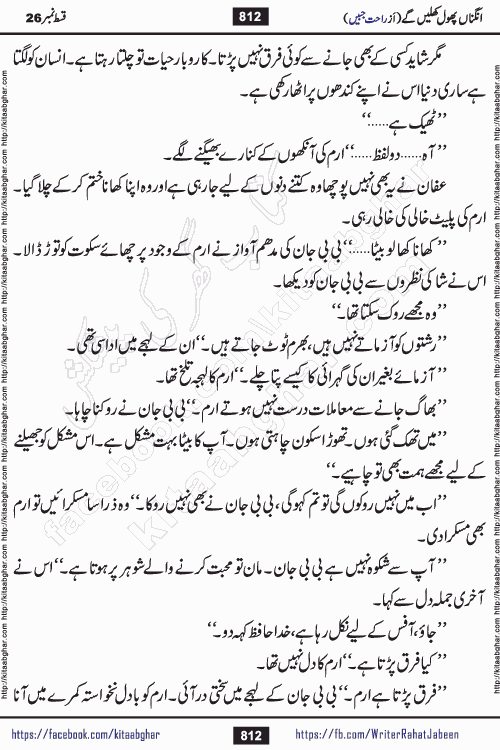 قسط نمبر 26
812
انگناں پھول کھلیں گے (از راحت جبیں)
مگر شاید کسی کے بھی جانے سے کوئی فرق نہیں پڑتا۔ کاروبار حیات تو چلتا رہتا ہے۔ انسان کو لگتا
ہے ساری دنیا اس نے اپنے کندھوں پر اٹھا رکھی ہے۔
”ٹھیک ہے......“
”آہ......دو لفظ......“ ارم کی آنکھوں کے کنارے بھیگنے لگے۔
عفان نے یہ بھی نہیں پوچھا وہ کتنے دنوں کے لیے جا رہی ہے اور وہ اپنا کھانا ختم کر کے چلا گیا۔
ارم کی پلیٹ خالی کی خالی رہی۔
”کھانا کھا لو بیٹا......“ بی بی جان کی مدھم آواز نے ارم کے وجود پر چھائے سکوت کو توڑ ڈالا۔
اس نے شاکی نظروں سے بی بی جان کو دیکھا۔
”وہ مجھے روک سکتا تھا۔“
”رشتوں کو آزماتے نہیں ہیں، بھرم ٹوٹ جاتے ہیں۔“ ان کے لہجے میں اداسی تھی۔
”آزمائے بغیر ان کی گہرائی کا کیسے پتا چلے۔“ ارم کا لہجہ تلخ تھا۔
”بھاگ جانے سے معاملات درست نہیں ہوتے ارم۔“ بی بی جان نے روکنا چاہا۔
”میں تھک گئی ہوں۔ تھوڑا سکون چاہتی ہوں۔ آپ کا بیٹا بہت مشکل ہے۔ اس مشکل کو جھیلنے
کے لیے مجھے ہمت بھی تو چاہیے۔“
”اب میں نہیں روکوں گی تو تم کہو گی، بی بی جان نے بھی نہیں روکا۔“ وہ ذرا سا مسکرائیں تو ارم
بھی مسکرا دی۔
”آپ سے شکوہ نہیں ہے بی بی جان۔ مان تو محبت کرنے والے شوہر پر ہوتا ہے۔“ اس نے
آخری جملہ دل سے کہا۔
”جاؤ، آفس کے لیے نکل رہا ہے، خدا حافظ کہہ دو۔“
”کیا فرق پڑتا ہے۔“ ارم کا دل نہیں تھا۔
”فرق پڑتا ہے ارم۔“ بی بی جان کے لہجے میں سختی در آئی۔ ارم کو بادل نخواستہ کمرے میں آنا
https://facebook.com/kitaabghar
812
https://fb.com/WriterRahatJabeen
http://kitaabghar.com http://kitaabghar.com http://kitaabghar.com http://kitaabghar.com http://kitaabghar.com http://kitaabghar.com
http://kitaabghar.com http://kitaabghar.com http://kitaabghar.com http://kitaabghar.com http://kitaabghar.com http://kitaabghar.com
کتاب گھر کی پیشکش
facebook.com/kitaabghar
kitaabghar.com